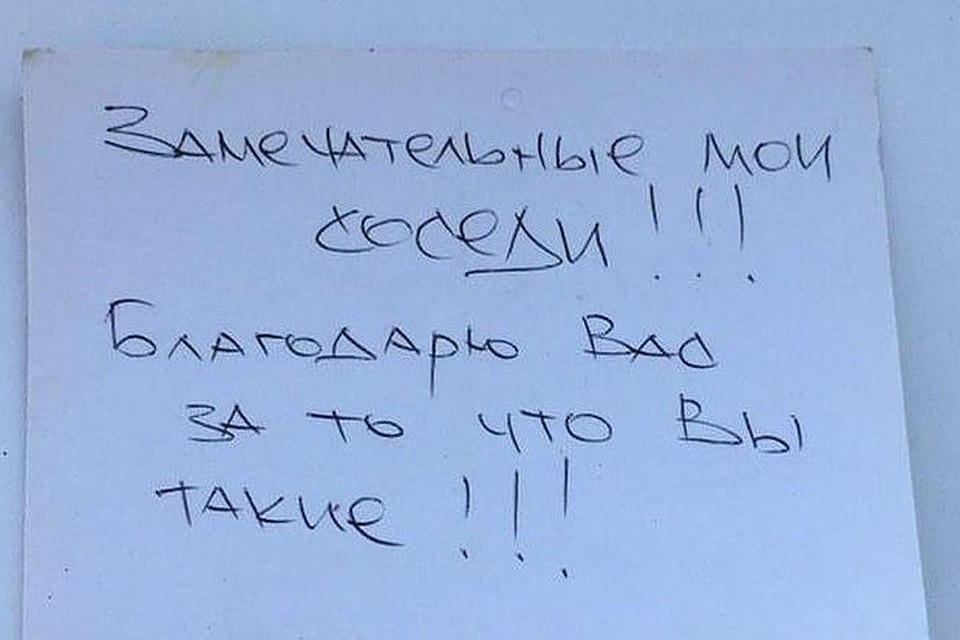 Замечательные мои
соседи!!!
Благодарю Вас
за то что Вы
такие!!!